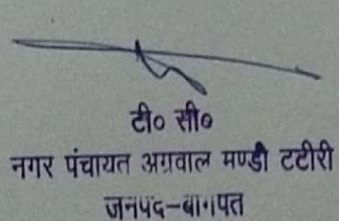 टी० सी०
नगर पंचायत अग्रवाल मण्डी टटीरी
जनपद-बागपत